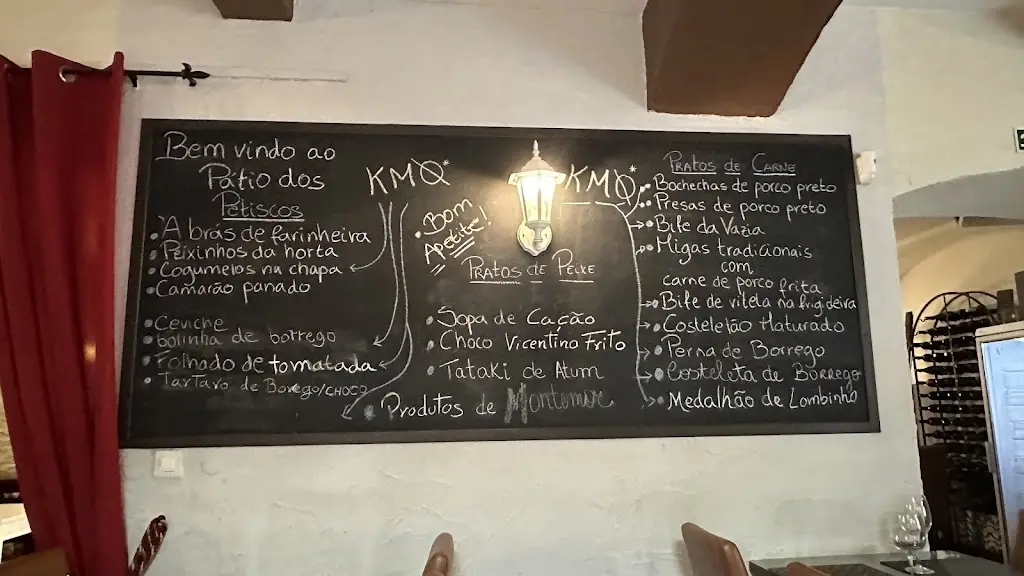 Bem vindo ao
Pátio dos
Petiscos
• A brás de farinheira
• Peixinhos da horta
• Cogumelos na chapa
• Camarão panado
• Ceviche
• bolinha de borrego
• Folhado de tomatada
• Tártaro de Borego/CHOCO
KMØ*
• Bom
Apetite!
Pratos de Peixe
• Sopa de Cação
• Choco Vicentino Frito
• Tataki de Atum
* Produtos de Montemor
KMØ*
Pratos de Carne
• Bochechas de porco preto
• Presas de porco preto
• Bife da Vazia
• Migas tradicionais
com
carne de porco frita
• Bife de vitela na frigideira
• Costeletão Maturado
• Perna de Borrego
• Costeleta de Borrego
• Medalhão de Lombinho